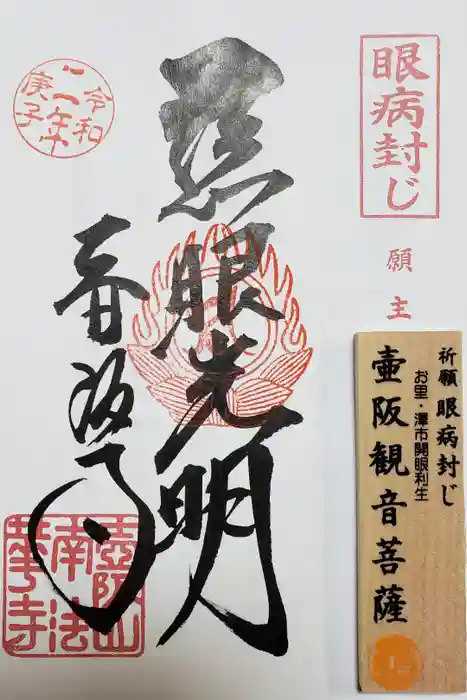 眼病封じ
願主
祈願 眼病封じ
お里・澤市開眼利生
壷阪観音菩薩
令和
二年
庚子
眼光明
壺阪山
南法
華寺